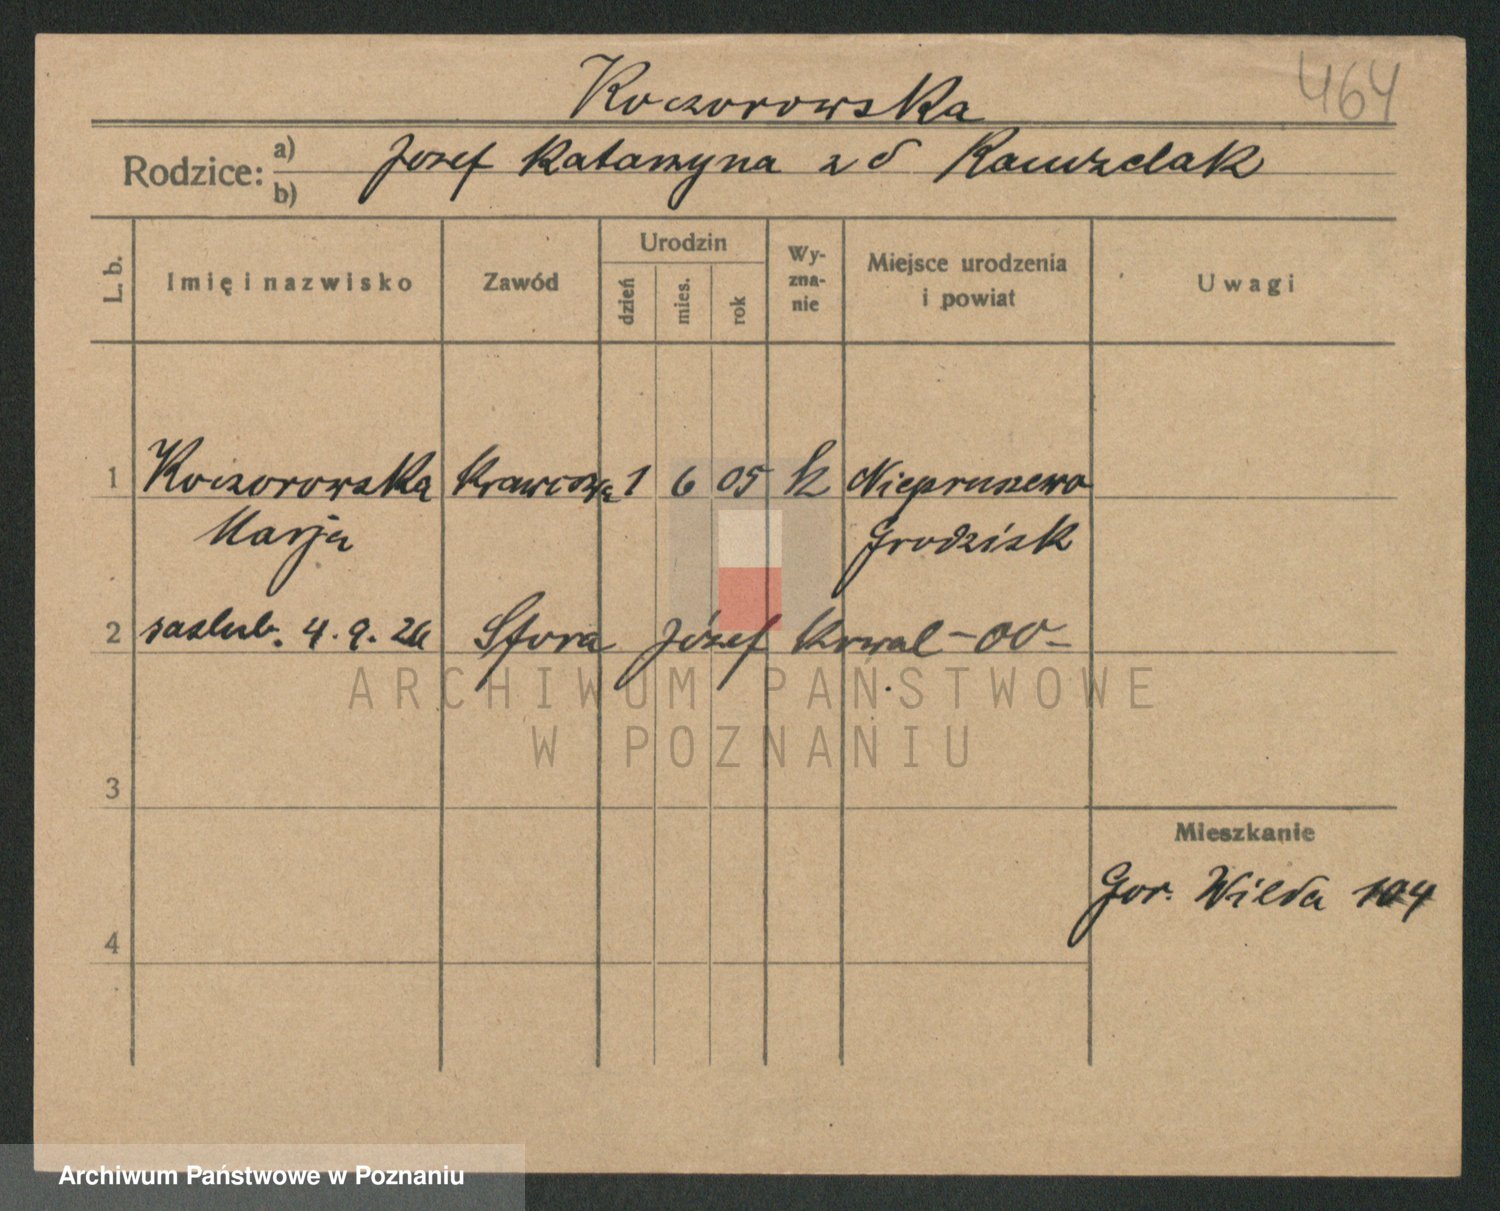 464
Koczorowska
Rodzice: a) b) Jozef Katarzyna z d
L. b. Imię i nazwisko Zawód Urodzin dzień mies. rok Wy-zna-nie Miejsce urodzenia i powiat Uwagi
1 Koczorowska Krawcowa 1 6 05 k Niepruszewo
Marja Grodzisk
2 zaslub. 4.9.26 Sfora Józef Kowal -00-
ARCHIWUM PAŃSTWOWE
W POZNANIU
3
Mieszkanie
Gor. Wilda 104
4
Archiwum Państwowe w Poznaniu